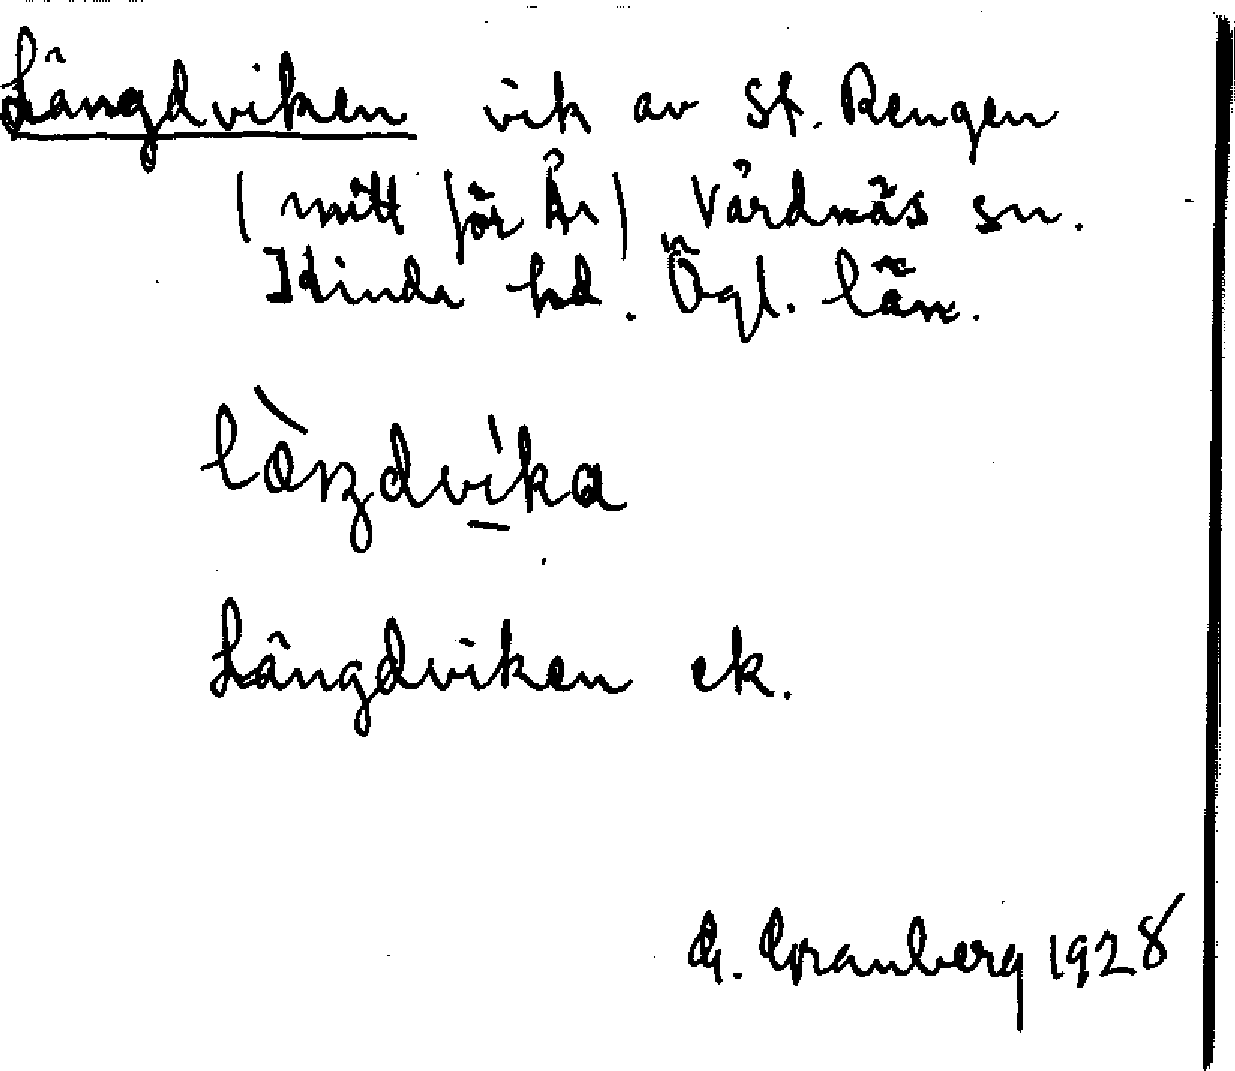 Långdviken vik av St. Rengen
(mitt för Ås) Vårdnäs sn.
Kinda hd. Ögl. län.
làŋdvika
Långdviken ek.
G. Granberg 1928